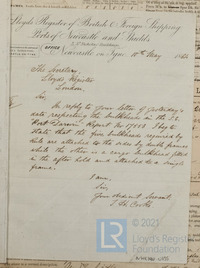 Lloyd's Register of British & Foreign Shipping
Ports of Newcastle and Shields
Newcastle on Tyne 10th May 188
The Secretary
Lloyds Register
London
Sir
In reply to your letter of yesterday's
date respecting the bulkheads in the S.S.
"Port Darwin" Report No I beg to
state that the five bulkheads required by
rule are attached to the sides by double frames
while the other is a cargo bulkhead fitted
in the after hold and attached to a single
frame.
I am
Sir
Your obedient Servant,
© 2021
Lloyd's Register
Foundation